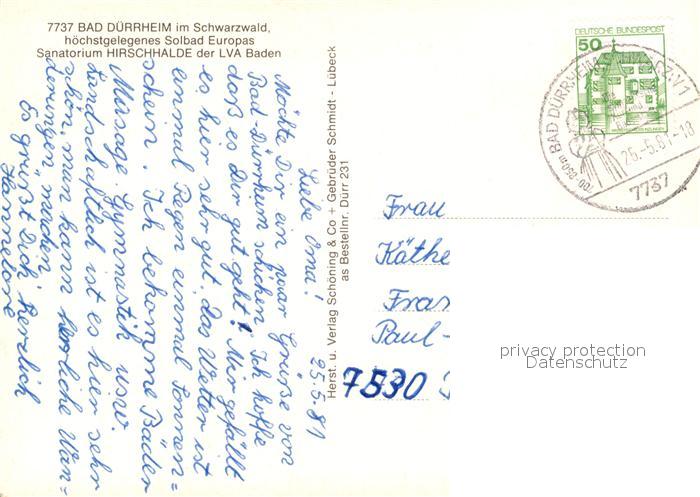 7737 BAD DÜRRHEIM im Schwarzwald,
höchstgelegenes Solbad Europas
Sanatorium HIRSCHHALDE der LVA Baden
25.5.81
Liebe Oma!
Möchte Dir ein paar Grüße von
Bad-Dürrheim schicken. Ich hoffe
daß es Dir gut geht! Mir gefällt
es hier sehr gut. das Wetter ist
einmal Regen einmal Sonnen=
schein. Ich bekomme Bäder
Massage Gymnastik usw.
Landschaftlich ist es hier sehr
schön, man kann herrliche Wan=
derungen machen.
Es grüßt Dich herzlich
Hannelore
Herst. u. Verlag Schöning & Co + Gebrüder Schmidt - Lübeck
as Bestellnr. Dürr 231
DEUTSCHE BUNDESPOST
50
BAD DÜRRHEIM
25.-5.81-18
7737
Frau
Käthe
Fras
Paul-
7530
privacy protection
Datenschutz